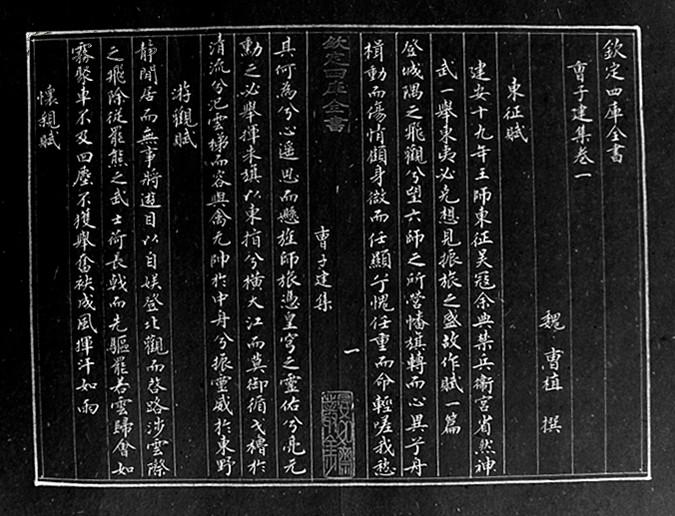 欽定四庫全書
曹子建集卷一
魏 曹植 撰
東征賦
建安十九年王師東征吳寇余典禁兵衛宮省然神
武一舉東夷必克想見振旅之盛故作賦一篇
登城隅之飛觀兮望六師之所營幡旗轉而心異兮舟
楫動而傷情顧身微而任顯兮愧任重而命輕嗟我愁
欽定四庫全書
曹子建集
一
其何為兮心遥思而懸旌師旅憑皇穹之靈佑兮亮元
勳之必舉揮朱旗以東指兮横大江而莫御循戈櫓於
清流兮氾雲梯而容與禽元帥於中舟兮振靈威於東野
游觀賦
静閒居而無事將遊目以自娱登北觀而啓路涉雲際
之飛除從罷熊之武士荷長戟而先驅罷若雲歸會如
霧聚車不及回塵不獲舉奮袂成風揮汗如雨
懷親賦